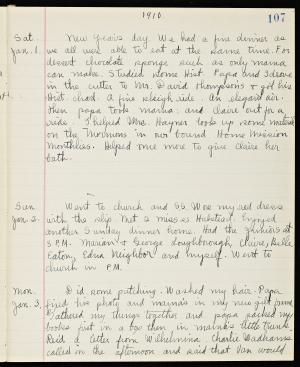 1910.
107
Sat.
Jan. 1.
New Years day. We had a fine dinner as
we all were able to eat at the same time. For
dessert chocolate sponge such as only mama
can make. Studied some Hist. Papa and I drove
in the cutter to Mr. David Thompson's & got his
Hist. chart. A fine sleigh ride an elegant air.
Then papa took mama and Claire out for a
ride. I helped Mrs. Hayner look up some material
on the Mormons in our bound Home Mission
Monthlies. Helped one more to give Claire her
bath.
Sun
Jan. 2.
Went to church and SS. Wore my red dress
with the slip. Met 2 misses Halstead. Enjoyed
another Sunday dinner home. Had the Juniors at
3 P.M. Marian & George Loughborough, Claire, Belle
Eaton, Edna Neighbor and myself. Went to
church in P.M.
Mon.
Jan. 3.
Did some patching. Washed my hair. Papa
fixed his photo and mama's in my new gift frame
Gathered my things together and papa packed my
books first in a box then in mama's little trunk.
Rec'd a letter from Wilhelmina. Charlie Wadhams
called in the afternoon and said that Van would